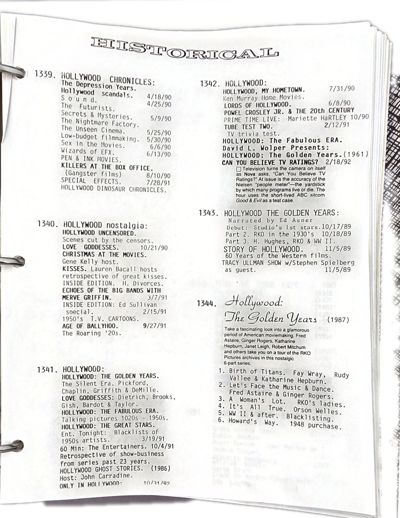 HISTORICAL
1339. HOLLYWOOD CHRONICLES:
The Depression Years.
Hollywood scandals. 4/18/90
Sound. 4/25/90
The Futurists.
Secrets & Mysteries. 5/9/90
The Nightmare Factory.
The Unseen Cinema. 5/25/90
Low-budget filmmaking. 5/30/90
Sex in the Movies. 6/6/90
Wizards of EFX. 6/13/90
PEN & INK MOVIES.
KILLERS AT THE BOX OFFICE.
(Gangster films) 8/10/90
SPECIAL EFFECTS. 7/28/91
HOLLYWOOD DINOSAUR CHRONICLES.
1340. HOLLYWOOD nostalgia:
HOLLYWOOD UNCENSORED.
Scenes cut by the censors.
LOVE GODDESSES. 10/21/90
CHRISTMAS AT THE MOVIES.
Gene Kelly host.
KISSES. Lauren Bacall hosts
retrospective of great kisses.
INSIDE EDITION. H. Divorces.
ECHOES OF THE BIG BANDS WITH
MERV GRIFFIN. 3/7/91
INSIDE EDITION: Ed Sullivan
special. 2/15/91
1950's T.V. CARTOONS.
AGE OF BALLYHOO. 9/27/91
The Roaring '20s.
1341. HOLLYWOOD:
HOLLYWOOD: THE GOLDEN YEARS.
The Silent Era. Pickford,
Chaplin, Griffith & DeMille.
LOVE GODDESSES: Dietrich, Brooks,
Gish, Bardot & Taylor.
HOLLYWOOD: THE FABULOUS ERA.
Talking pictures 1020s - 1950s.
HOLLYWOOD: THE GREAT STARS.
Ent. Tonight: Blacklists of
1950s artists. 3/19/91
60 Min: The Entertainers. 10/4/91
Retrospective of show-business
from series past 23 years.
HOLLYWOOD GHOST STORIES. (1986)
Host: John Carradine.
ONLY IN HOLLYWOOD: 10/31/92
1342. HOLLYWOOD:
HOLLYWOOD, MY HOMETOWN. 7/31/90
Ken Murray Home Movies.
LORDS OF HOLLYWOOD. 6/8/90
POWEL CROSLEY JR. & THE 20th CENTURY
PRIME TIME LIVE: Mariette HARTLEY 10/90
TUBE TEST TWO. 2/12/91
TV trivia test.
HOLLYWOOD: The Fabulous Era.
David L. Wolper Presents:
HOLLYWOOD: The Golden Years.(1961)
CAN YOU BELIEVE TV RATINGS? 2/18/92
Television turns the camera on itself
as Nova asks, "Can You Believe TV
Ratings?" At issue is the accuracy of the
Nielsen "people meter"—the yardstick
by which many programs live or die. The
hour uses the short-lived ABC sitcom
Good & Evil as a test case.
1343. HOLLYWOOD THE GOLDEN YEARS:
Narrated by Ed Asner
Debut: Studio's 1st stars.10/17/89
Part 2. RKO in the 1930's 10/18/89
Part 3. H. Hughes, RKO & WW II.
STORY OF HOLLYWOOD. 11/5/89
60 Years of the Western films.
TRACY ULLMAN SHOW w/Stephen Spielberg
as guest. 11/5/89
1344. Hollywood:
The Golden Years (1987)
Take a fascinating look into a glamorous
period of American moviemaking. Fred
Astaire, Ginger Rogers, Katharine
Hepburn, Janet Leigh, Robert Mitchum
and others take you on a tour of the RKO
Pictures archives in this nostalgic
6-part series.
1. Birth of Titans. Fay Wray, Rudy
Vallee & Katharine Hepburn.
2. Let's Face the Music & Dance.
Fred Astaire & Ginger Rogers.
3. A Woman's Lot. RKO's ladies.
4. It's All True. Orson Welles.
5. WW II & after. Blacklisting.
6. Howard's Way. 1948 purchase.